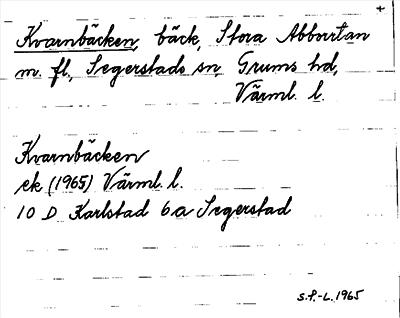 +
Kvarnbäcken, bäck, Stora Abborrtan
m. fl., Segerstads sn, Grums hd,
Värml. l.
Kvarnbäcken
ek (1965) Värml. l.
10 D Karlstad 6a Segerstad
S.P.-L. 1965